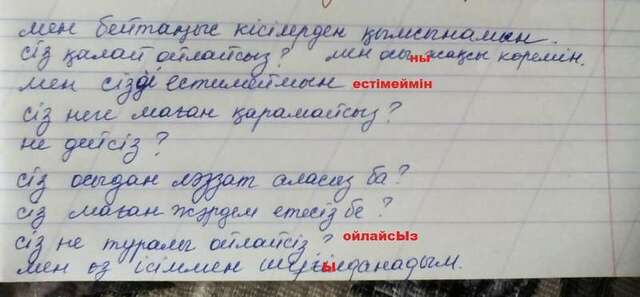 мен бейтаныс кісілерден қымсынамын.
сіз қалай ойлайсыз? мен осыны жақсы көремін.
мен сізді естимаймын естімеймін
сіз неге маған қарамайсыз?
не дейсіз?
сіз осыдан ләззат аласыз ба?
сіз маған жәрдем етесіз бе?
сіз не туралы ойлайсіз? ойлайсЫз
мен өз ісіммен ы